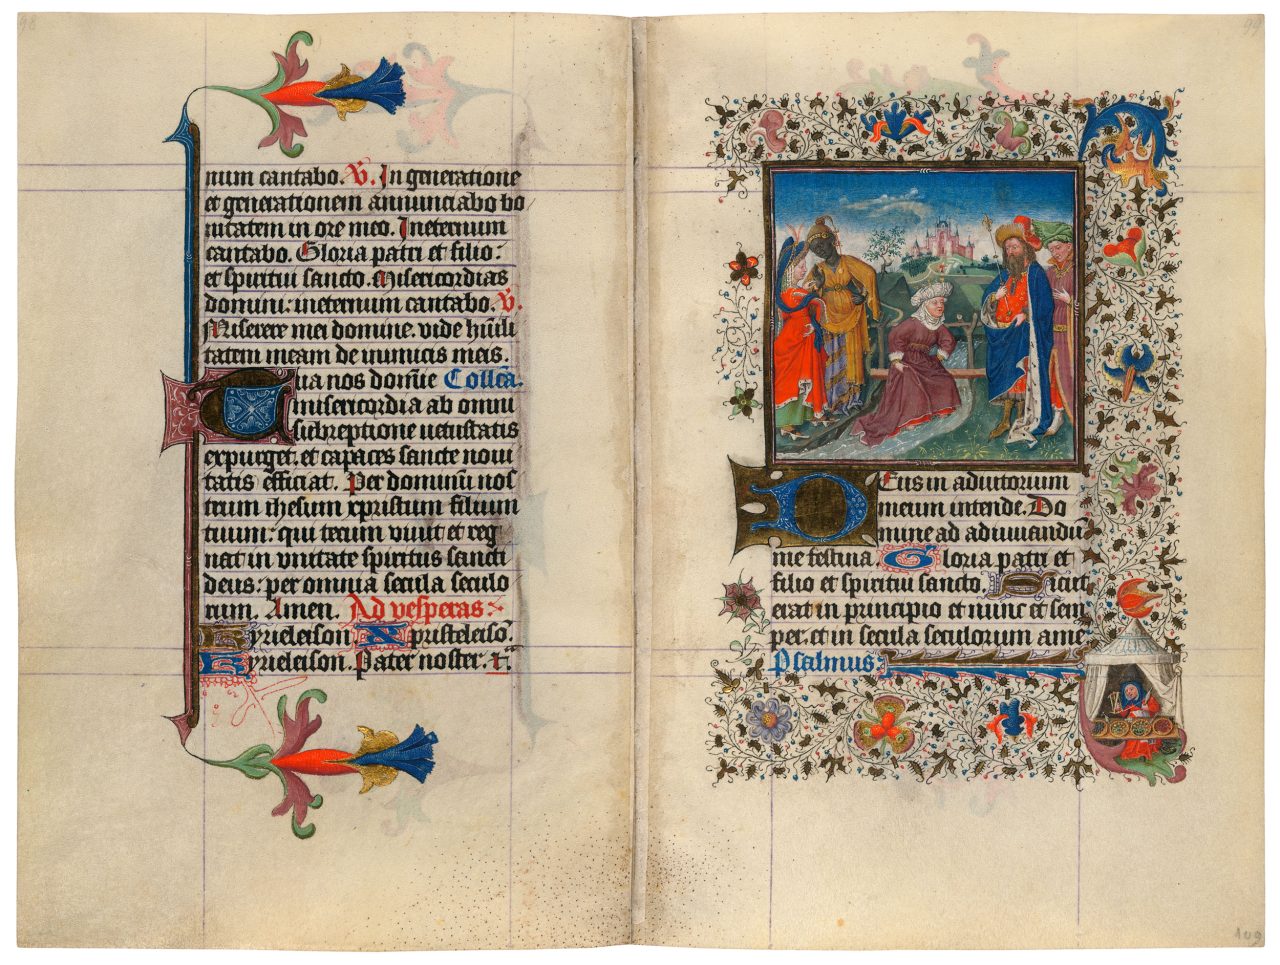 98
num cantabo. V. In generatione
et generationem annunciabo bo
nitatem in ore meo. Ineternum
cantabo. Gloria patri et filio:
et spiritui sancto. Misericordias
domini: ineternum cantabo. V.
Miserere mei domine. vide hūili
tatem meam de inimicis meis.
Tua nos domīe Collcā.
misericordia ab omni
subreptione uetustatis
expurget. et capaces sancte noui
tatis efficiat. Per dominū nos
trum ihesum xpristum filium
tuum: qui tecum uiuit et reg
nat in vnitate spiritus sancti
deus: per omnia secula seculo
rum. Amen. Ad vesperas:
Kyrieleison. Xpristeleisō.
Kyrieleison. Pater noster.
99
Deus in adiutorium
meum intende. Do
mine ad adiuuandū
me festina Gloria patri et
filio et spiritui sancto. Sicut
erat in principio et nunc et sem
per. et in secula seculorum ame
Psalmus:
109